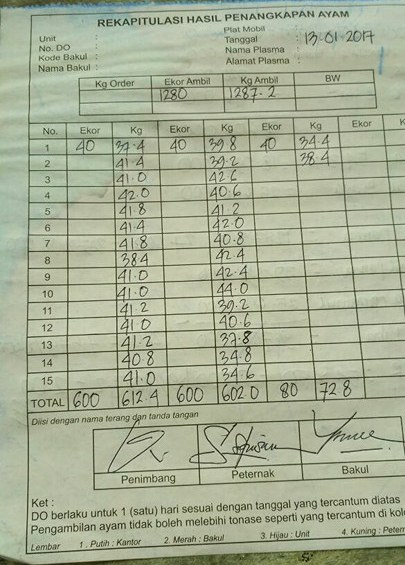 REKAPITULASI HASIL PENANGKAPAN AYAM
Unit :
No. DO :
Kode Bakul :
Nama Bakul :
Plat Mobil :
Tanggal : 13-01-2017
Nama Plasma :
Alamat Plasma :
Kg Order Ekor Ambil Kg Ambil BW
1280 1287.2
No. Ekor Kg Ekor Kg Ekor Kg Ekor K
1 40 37.4 40 39.8 40 34.4
2 41.4 39.2 38.4
3 41.0 42.6
4 42.0 40.6
5 41.8 41.2
6 41.4 42.0
7 41.8 40.8
8 38.4 42.4
9 41.0 42.4
10 41.0 44.0
11 41.2 39.2
12 41.0 40.6
13 41.2 37.8
14 40.8 34.8
15 41.0 34.6
TOTAL 600 612.4 600 602.0 80 72.8
Diisi dengan nama terang dan tanda tangan
Penimbang Peternak Bakul
Ket :
DO berlaku untuk 1 (satu) hari sesuai dengan tanggal yang tercantum diatas
Pengambilan ayam tidak boleh melebihi tonase seperti yang tercantum di kol
Lembar 1. Putih : Kantor 2. Merah : Bakul 3. Hijau : Unit 4. Kuning : Petern